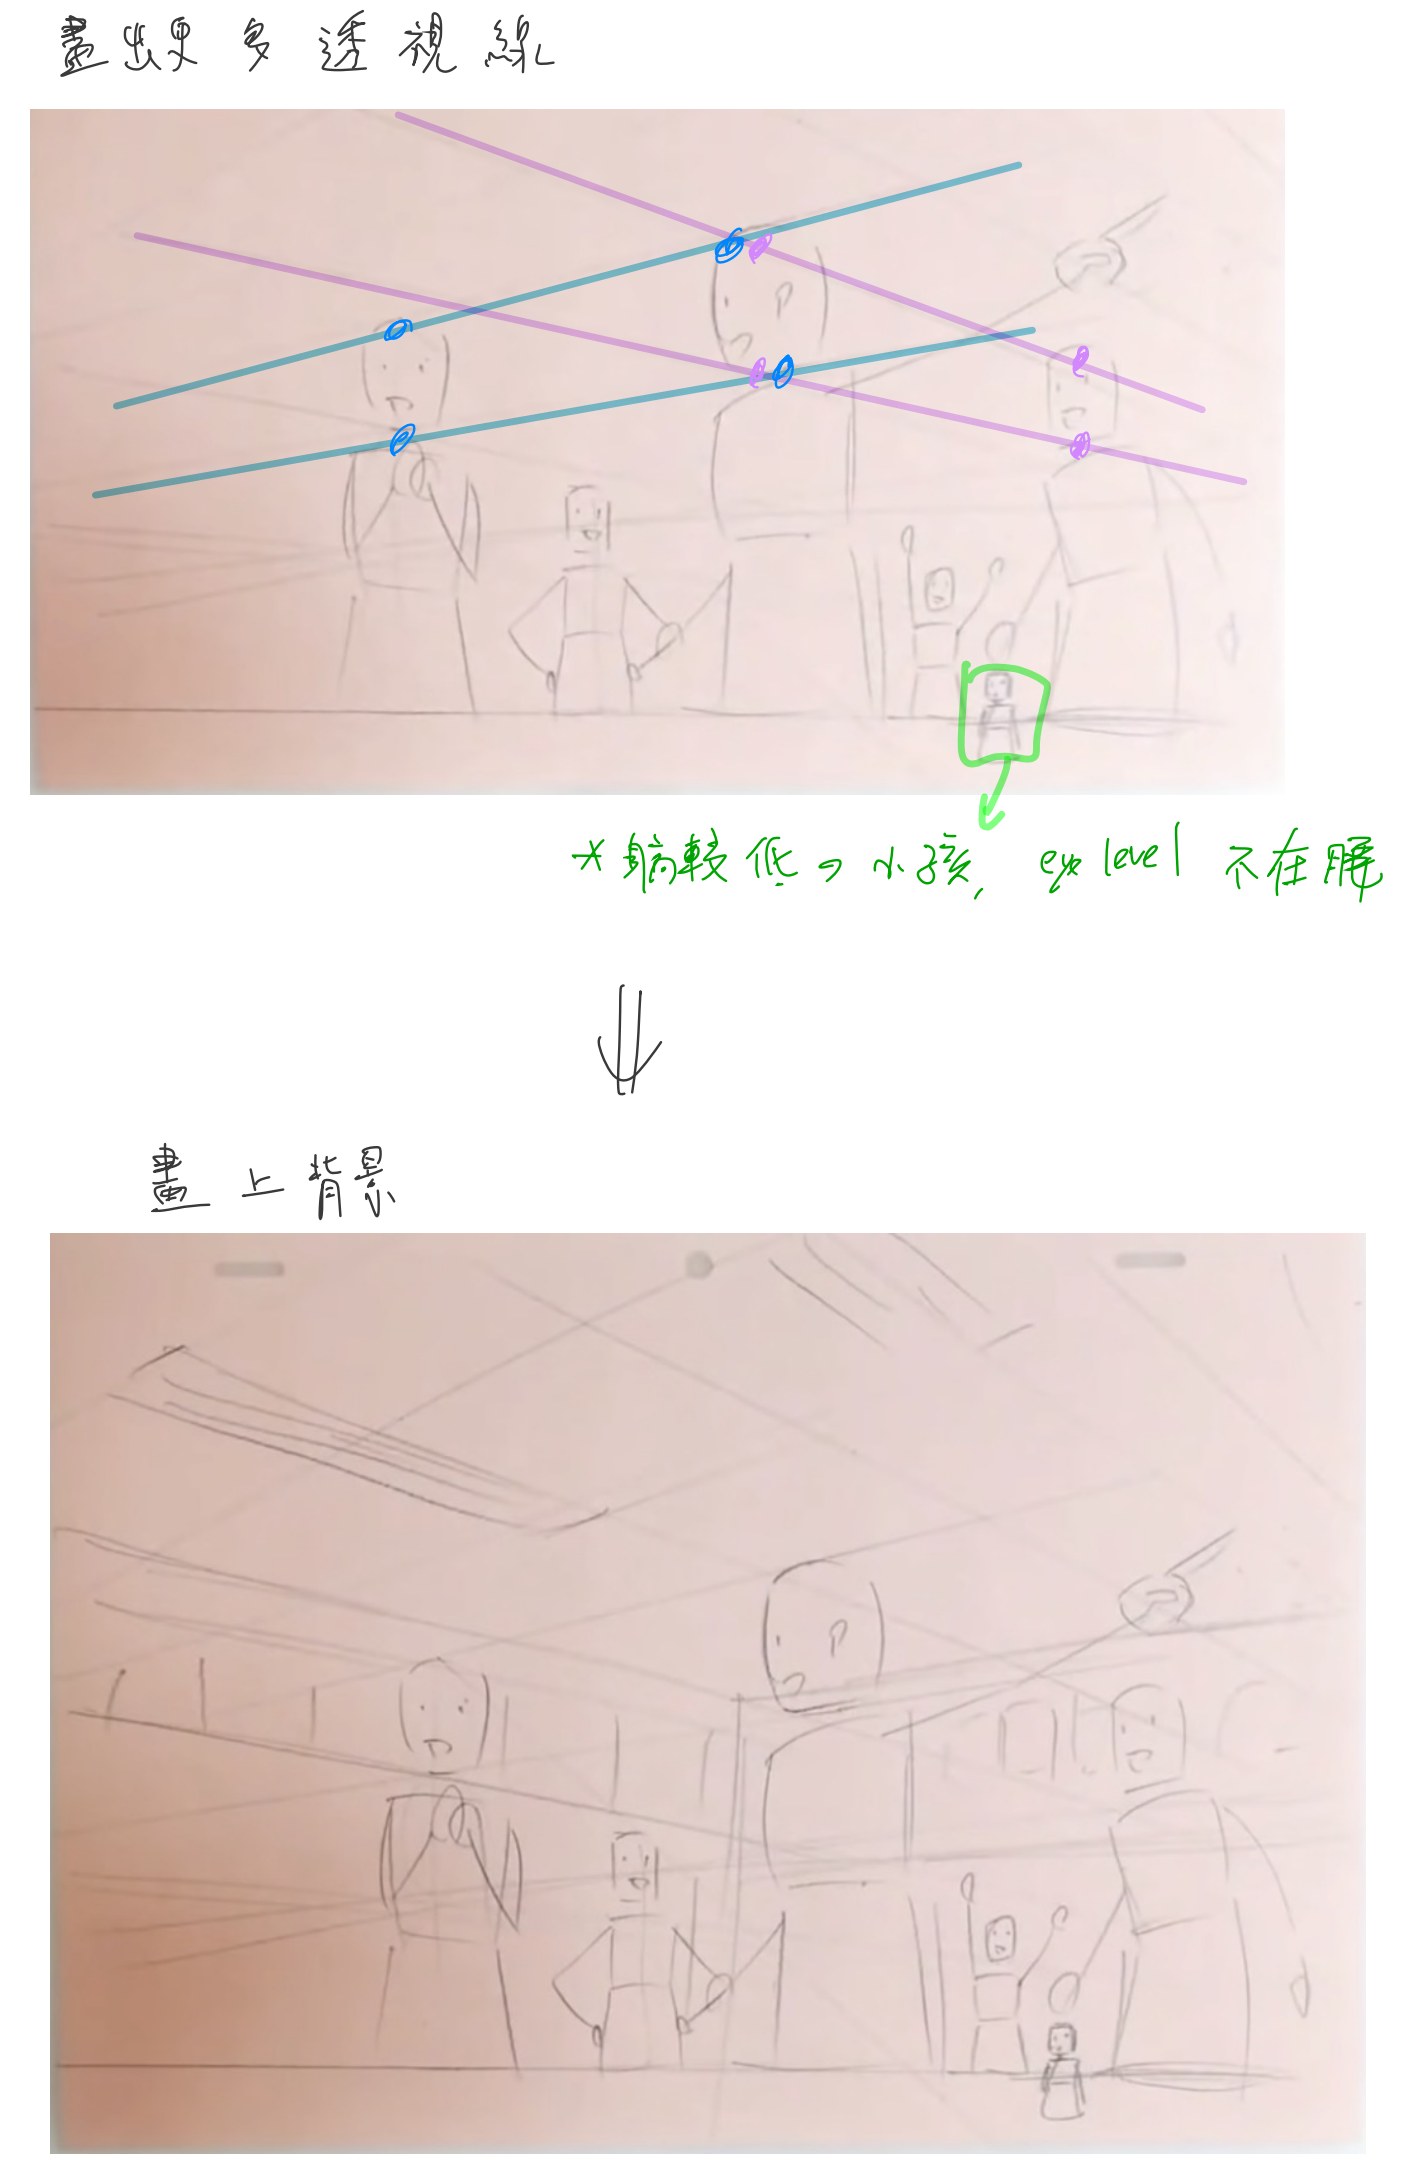 畫出更多透視線
*躺較低の小孩, eye level 不在腰
畫上背景